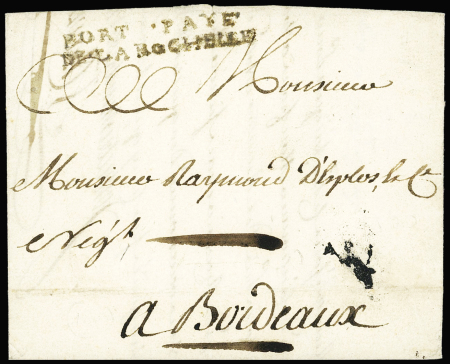 PORT PAYÉ
DE LA ROCHELLE
Monsieur
Monsieur Raymond
Négt
A Bordeaux